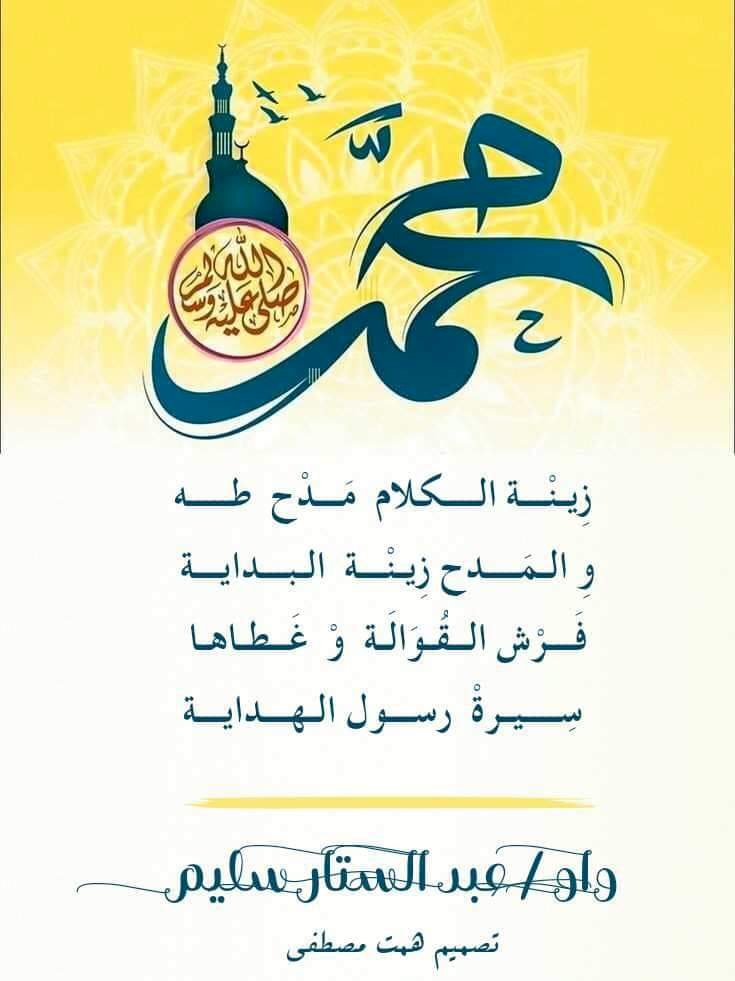 محمد
صلى الله عليه وسلم
زِيـنْـــة الــكلام مَــدْح طـــه
وِ الـمَـــدح زِيـنْـــة الـبـدايـــة
فَـــرْش الـقُـوَالَـة وْ غَــطـاهـا
سِـــيـرةْ رســـول الـهـدايـــة
واو/ عبد الستار سليم
تصميم همت مصطفى